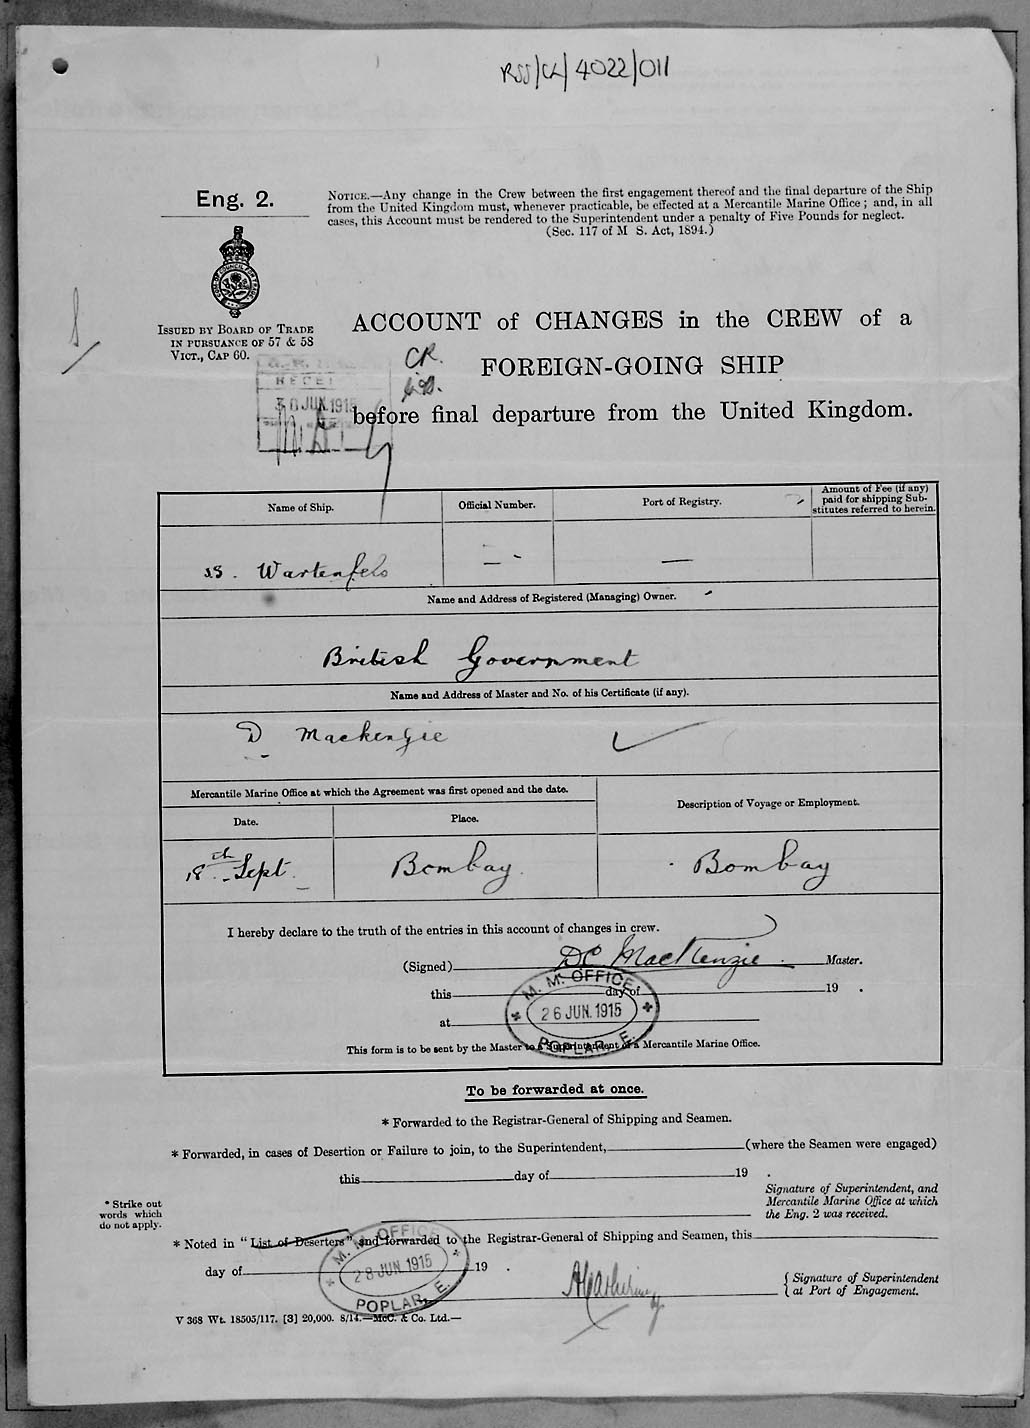 RSS/CL/4022/011
Eng. 2.
NOTICE.—Any change in the Crew between the first engagement thereof and the final departure of the Ship
from the United Kingdom must, whenever practicable, be effected at a Mercantile Marine Office; and, in all
cases, this Account must be rendered to the Superintendent under a penalty of Five Pounds for neglect.
(Sec. 117 of M S. Act, 1894.)
ISSUED BY BOARD OF TRADE
IN PURSUANCE OF 57 & 58
VICT., CAP 60.
ACCOUNT of CHANGES in the CREW of a
CR.
FOREIGN-GOING SHIP
RECEI
30 JUN.1915
before final departure from the United Kingdom.
Name of Ship.
Official Number.
Port of Registry.
Amount of Fee (if any)
paid for shipping Sub-
stitutes referred to herein.
ss. Wartenfels
— -
—
Name and Address of Registered (Managing) Owner.
British Government
Name and Address of Master and No. of his Certificate (if any).
D Mackenzie
Mercantile Marine Office at which the Agreement was first opened and the date.
Description of Voyage or Employment.
Date.
Place.
18th Sept.
Bombay.
Bombay
I hereby declare to the truth of the entries in this account of changes in crew.
(Signed) DC MacKenzie. Master.
this day of 19 .
at
M. M. OFFICE
26 JUN.1915
POPLAR, E.
This form is to be sent by the Master to a Superintendent of a Mercantile Marine Office.
To be forwarded at once.
* Forwarded to the Registrar-General of Shipping and Seamen.
* Forwarded, in cases of Desertion or Failure to join, to the Superintendent, (where the Seamen were engaged)
this day of 19 .
Signature of Superintendent, and
Mercantile Marine Office at which
the Eng. 2 was received.
* Strike out
words which
do not apply.
* Noted in "List of Deserters" and forwarded to the Registrar-General of Shipping and Seamen, this
day of 19 .
M. M. OFFICE
28 JUN.1915
POPLAR, E.
Signature of Superintendent
at Port of Engagement.
V 368 Wt. 18505/117. [3] 20,000. 8/14.—McC. & Co. Ltd.—